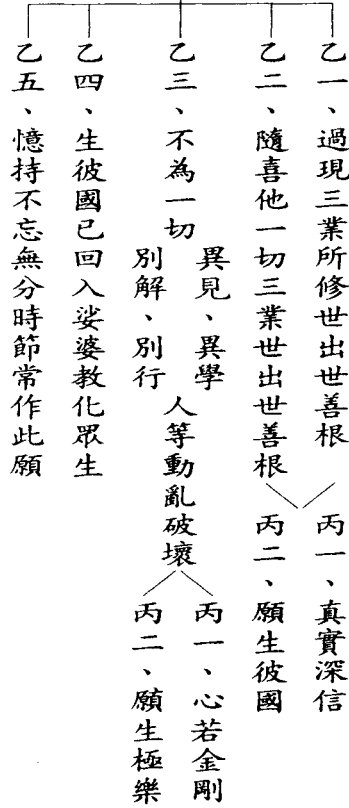 乙一、過現三業所修世出世善根
乙二、隨喜他一切三業世出世善根
丙一、真實深信
丙二、願生彼國
乙三、不為一切
異見、異學
別解、別行
人等動亂破壞
丙一、心若金剛
丙二、願生極樂
乙四、生彼國已回入娑婆教化眾生
乙五、憶持不忘無分時節常作此願